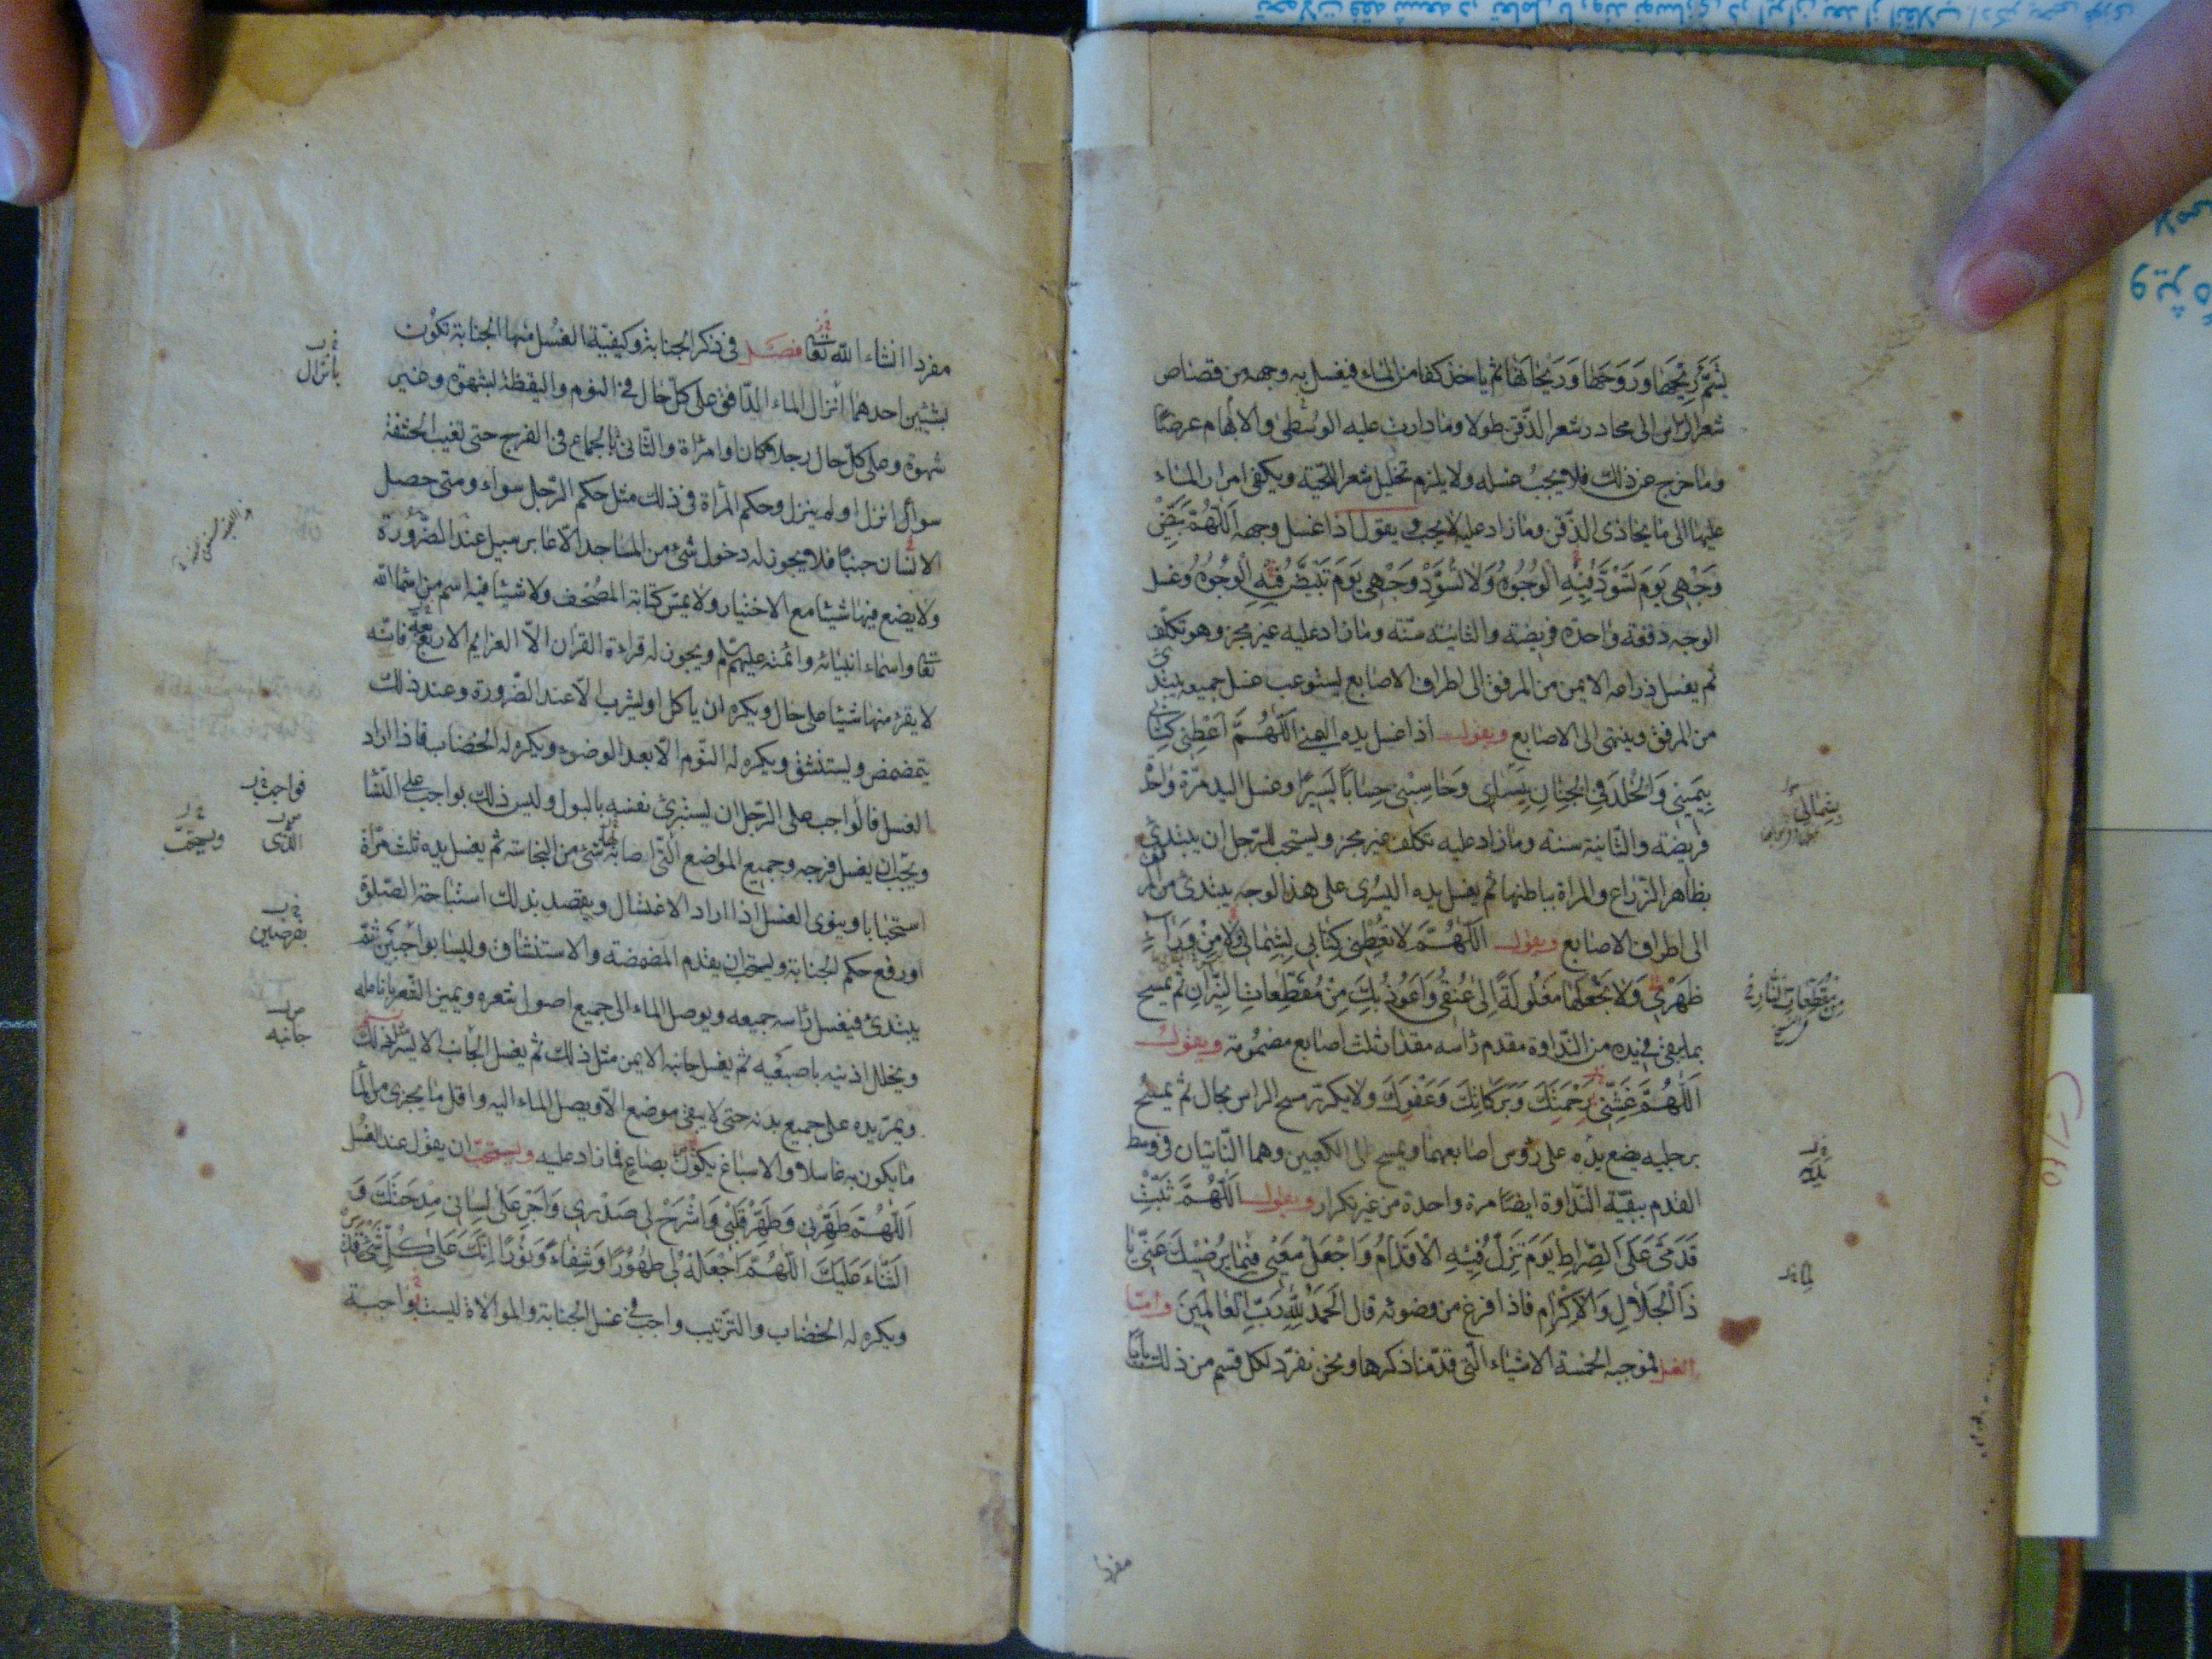 يَشَمُّ رِيحَهَا وَرَوحَهَا وَرَيْحَانَهَا ثم ياخذ كفا من الماء فيغسل به وجهه من قصاص
شعر الراس الى محادر شعر الذّقن طولا وما دارت عليه الوُسْطى والابهام عرضًا
وما خرج عن ذلك فلا يجب غسله ولا يلزم تخليل شعر اللحية ويكفى امرار الماء
عليها الى ما يحاذى الذّقن وما زاد عليه لا يجب ويقول اذا غسل وجهه اَللّهُمَّ بَيِّضْ
وَجْهى يَومَ تَسْوَدُّ فيهِ الوُجُوهُ وَلا تُسَوِّدْ وَجْهى يَومَ تَبْيَضُّ فيهِ الوُجُوهُ وغسل
الوجه دفعة واحدة فريضة والثانية سنّة وما زاد عليه غير مجز وهو تكلّف
ثم يغسل ذراعه الايمن من المرفق الى اطراف الاصابع يستوعب غسل جميعه يبتدئ
من المرفق وينتهى الى الاصابع ويقول اذا غسل يده اليمنى اَللّهُمَّ اَعْطِنى كِتابى
بِيَمينى وَالخُلدَ فى الجِنانِ بِيَسارى وَحَاسِبْنى حِسَاباً يَسيرًا وغسل اليد مرّة واحدة
فريضة والثانية سنة وما زاد عليه تكلف غير مجز ويستحب للرّجل ان يبتدئ
بظاهر الذّراع والمراة بباطنها ثم يغسل يده اليسرى على هذا الوجه يبتدئ من المرفق
الى اطراف الاصابع ويقول اَللّهُمَّ لا تُعْطِنى كِتابى بِشِمالى وَلا مِنْ وَراءِ
ظَهْرى وَلا تَجْعَلها مَغْلُولَةً اِلى عُنُقى وَاَعُوذُ بِكَ مِنْ مُقَطِّعاتِ النّيرانِ ثم يمسح
بما يبقى فى يده من النّداوة مقدم راسه مقدار ثلث اصابع مضمومة ويقول
اَللّهُمَّ غَشِّنى بِرَحْمَتِكَ وَبَرَكاتِكَ وَعَفْوِكَ ولا يكرّر مسح الراس بحال ثم يمسح
برجليه يضع يده على رؤس اصابعهما ويمسح الى الكعبين وهما النّاتيان فى وسط
القدم ببقيّة النّداوة ايضًا مرة واحدة من غير تكرار ويقول اَللّهُمَّ ثَبِّتْ
قَدَمَىَّ عَلَى الصِّراطِ يَومَ تَزِلُّ فيهِ الاَقدامُ وَاجْعَلْ سَعْيى فيما يُرضيكَ عَنّى يا
ذَا الْجَلالِ وَالاِكْرامِ فاذا فرغ من وضوئه قال اَلحَمدُ لِلّهِ رَبِّ العالَمينَ وامّا
الغسل فموجبه الخمسة الاشياء الّتى قدّمنا ذكرها ونحن نفرّد لكل قسم من ذلك بابا
بشمالى
من مقطعات النار
يديه
مفردا
مفردا انشاء اللّه تعا فصل فى ذكر الجنابة وكيفيّة الغسل منها الجنابة تكون
بشيئين احدهما انزال الماء الدّافق على كلّ حال فى النوم واليقظة بشهوة وغير
شهوة وعلى كلّ حال رجلا كان او امراة والثّانى بالجماع فى الفرج حتى تغيب الحشفة
سواء انزل او لم ينزل وحكم المرأة فى ذلك مثل حكم الرّجل سواء ومتى حصل
الانسان جنبًا فلا يجوز له دخول شئ من المساجد الّا عابر سبيل عند الضّرورة
ولا يضع فيها شيئا مع الاختيار ولا يمسّ كتابة المصحف ولا شيئا فيه اسم من اسماء اللّه
تعا واسماء انبيائه وائمته عليهم السّلم ويجوز له قراءة القرآن الّا العزايم الاربع فانّه
لا يقرء منها شيئا على حال ويكره ان ياكل او يشرب الّا عند الضّرورة وعند ذلك
يتمضمض ويستنشق ويكره له النّوم الّا بعد الوضوء ويكره له الخضاب فاذا اراد
الغسل فالواجب على الرّجل ان يستبرئ نفسه بالبول وليس ذلك بواجب على النّسا
ويجب ان يغسل فرجه وجميع المواضع الّتى اصابه شئ من النجاسة ثم يغسل يديه ثلث مرّاة
استحبابا وينوى الغسل اذا اراد الاغتسال ويقصد بذلك استباحة الصّلوة
او رفع حكم الجنابة ويستحب ان يقدم المضمضة والاستنشاق وليسا بواجبين ثمّ
يبتدئ فيغسل راسه جميعه ويوصل الماء الى جميع اصول شعره ويميز الشّعر بانامله
ويخلل اذنيه باصبعيه ثم يغسل جانبه الايمن مثل ذلك ثم يغسل الجانب الايسر مثل ذلك
ويمرّ يده على جميع بدنه حتى لا يبقى موضع الّا ويصل الماء اليه واقل ما يجزى من الماء
ما يكون به غاسلا والاسباغ يكون بصاع فما زاد عليه ويستحبّ ان يقول عند الغسل
اَللّهُمَّ طَهِّرْنى وَطَهِّرْ قَلْبى وَاشْرَحْ لى صَدْرى وَاَجْرِ عَلى لِسانى مِدْحَتَكَ وَ
الثَّناءَ عَلَيْكَ اَللّهُمَّ اجْعَلْهُ لى طَهُورًا وَشِفاءً وَنُورًا اِنَّكَ عَلى كُلِّ شَئٍ قَديرٌ
ويكره له الخضاب والترتيب واجب فى غسل الجنابة والموالاة ليست بواجبة
بانزال
فواجب
الّذى
ويستحبّ
بفرضين
جانبه